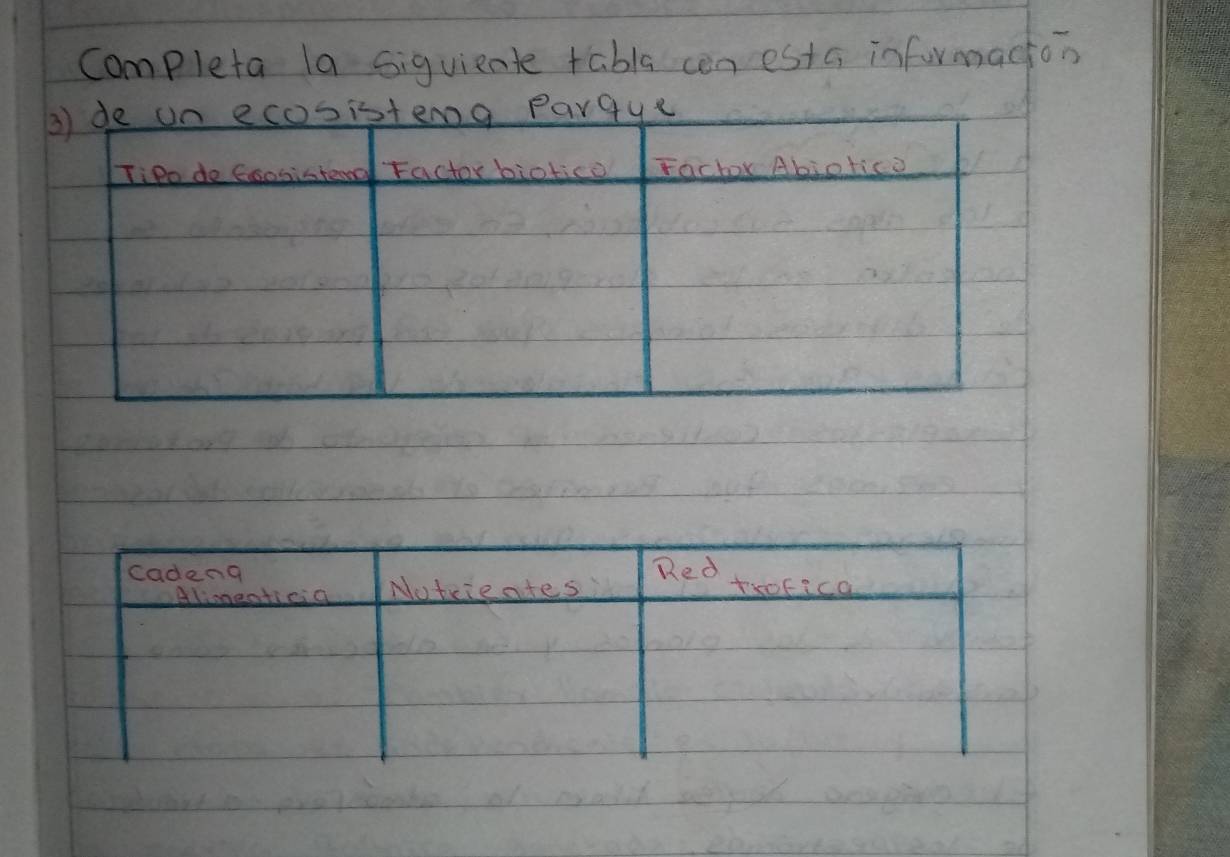 Completa la siguiente tabla con esta información
3) de un ecosistema Parque
Tipo de Ecosistema Factor biotico Factor Abiotico
Cadena
Alimenticia Nutrientes Red trofica